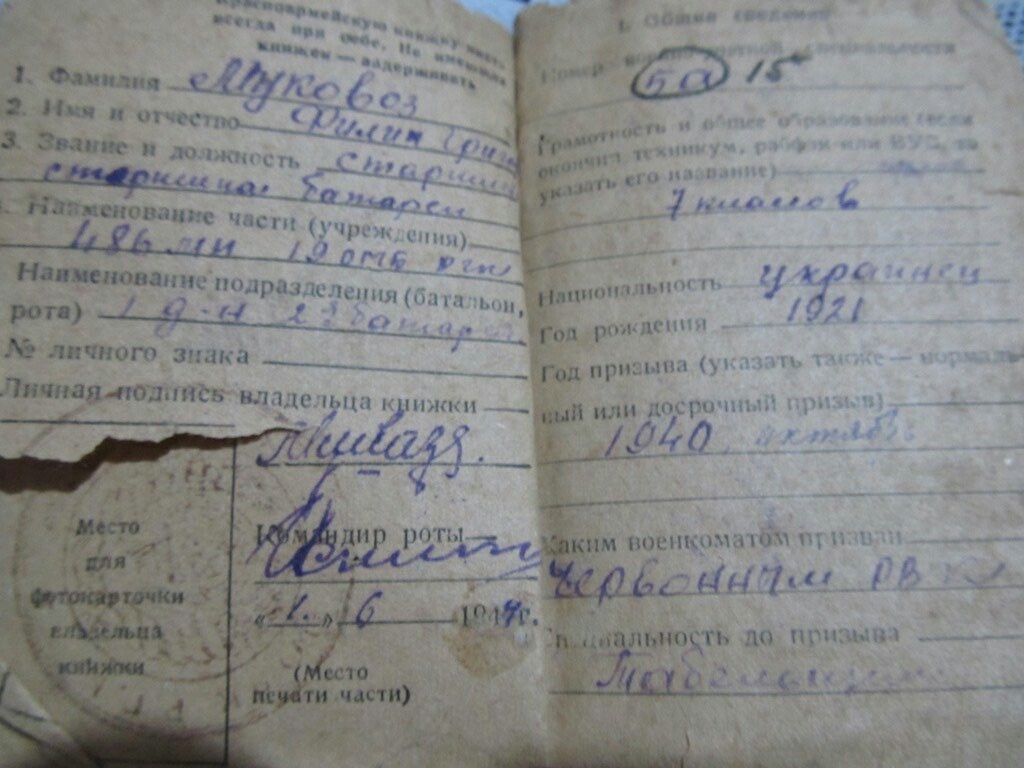 Красноармейскую книжку иметь
всегда при себе. Не имеющих
книжек — задерживать
1. Фамилия Муковоз
2. Имя и отчество Филип Григ
3. Звание и должность старшин
старшина батареи
Наименование части (учреждения)
486 мп 19
Наименование подразделения (батальон,
рота) 1 д-н 2 батарея
№ личного знака
Личная подпись владельца книжки
Командир роты
Место
для
фотокарточки
владельца
книжки
«1.» 6 1944г.
(Место
печати части)
I. Общие сведения
Номер специальности
5а 15
Грамотность и общее образование (если
окончил техникум, рабфак или ВУС, то
указать его название)
7 классов
Национальность украинец
Год рождения 1921
Год призыва (указать также — нормаль
ный или досрочный призыв)
1940 октябь
Каким военкоматом призван
Червонным РВК
Специальность до призыва